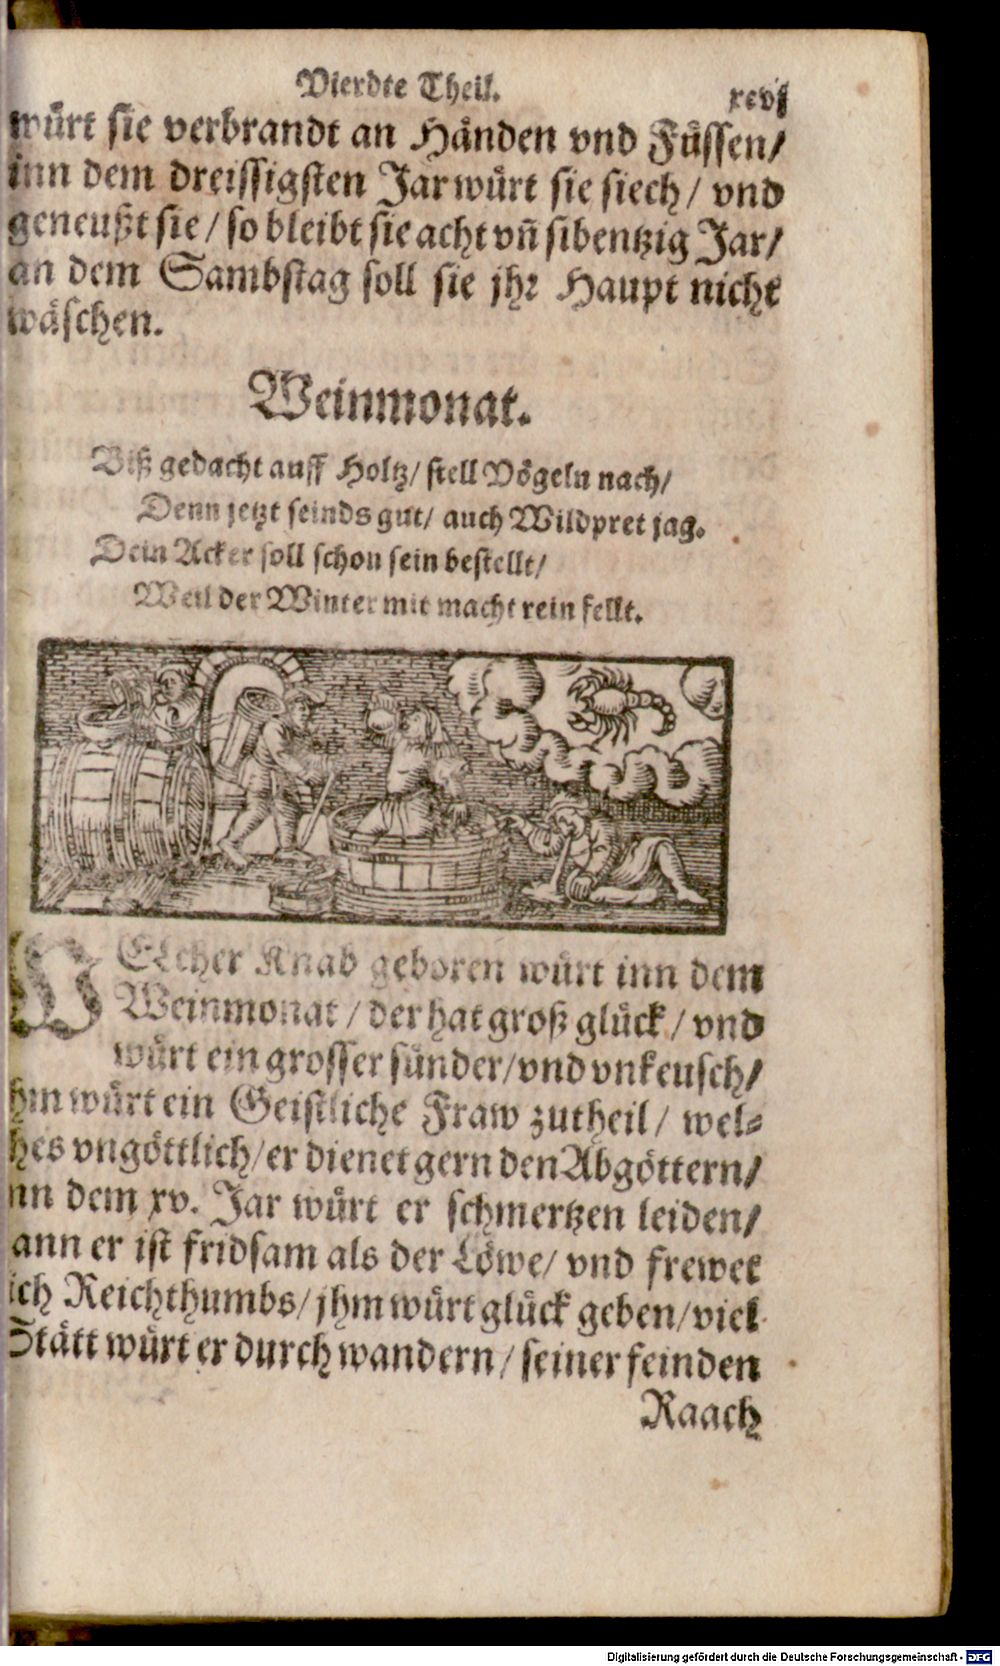 Vierdte Theil. xcvj
würt sie verbrandt an Händen vnd Füssen/
inn dem dreissigsten Jar würt sie siech/ vnd
geneußt sie/ so bleibt sie acht vñ sibentzig Jar/
an dem Sambstag soll sie jhr Haupt nicht
wäschen.
Weinmonat.
Biß gedacht auff Holtz/ stell Vögeln nach/
Denn jetzt seinds gut/ auch Wildpret jag.
Dein Acker soll schon sein bestellt/
Weil der Winter mit macht rein fellt.
WElcher Knab geboren würt inn dem
Weinmonat/ der hat groß glück/ vnd
würt ein grosser sünder/ vnd vnkeusch/
hm würt ein Geistliche Fraw zutheil/ wel-
hes vngöttlich/ er dienet gern den Abgöttern/
nn dem xv. Jar würt er schmertzen leiden/
ann er ist fridsam als der Löwe/ vnd frewet
ich Reichthumbs/ jhm würt glück geben/ viel
Stätt würt er durchwandern/ seiner feinden
Raach
Digitalisierung gefördert durch die Deutsche Forschungsgemeinschaft - DFG